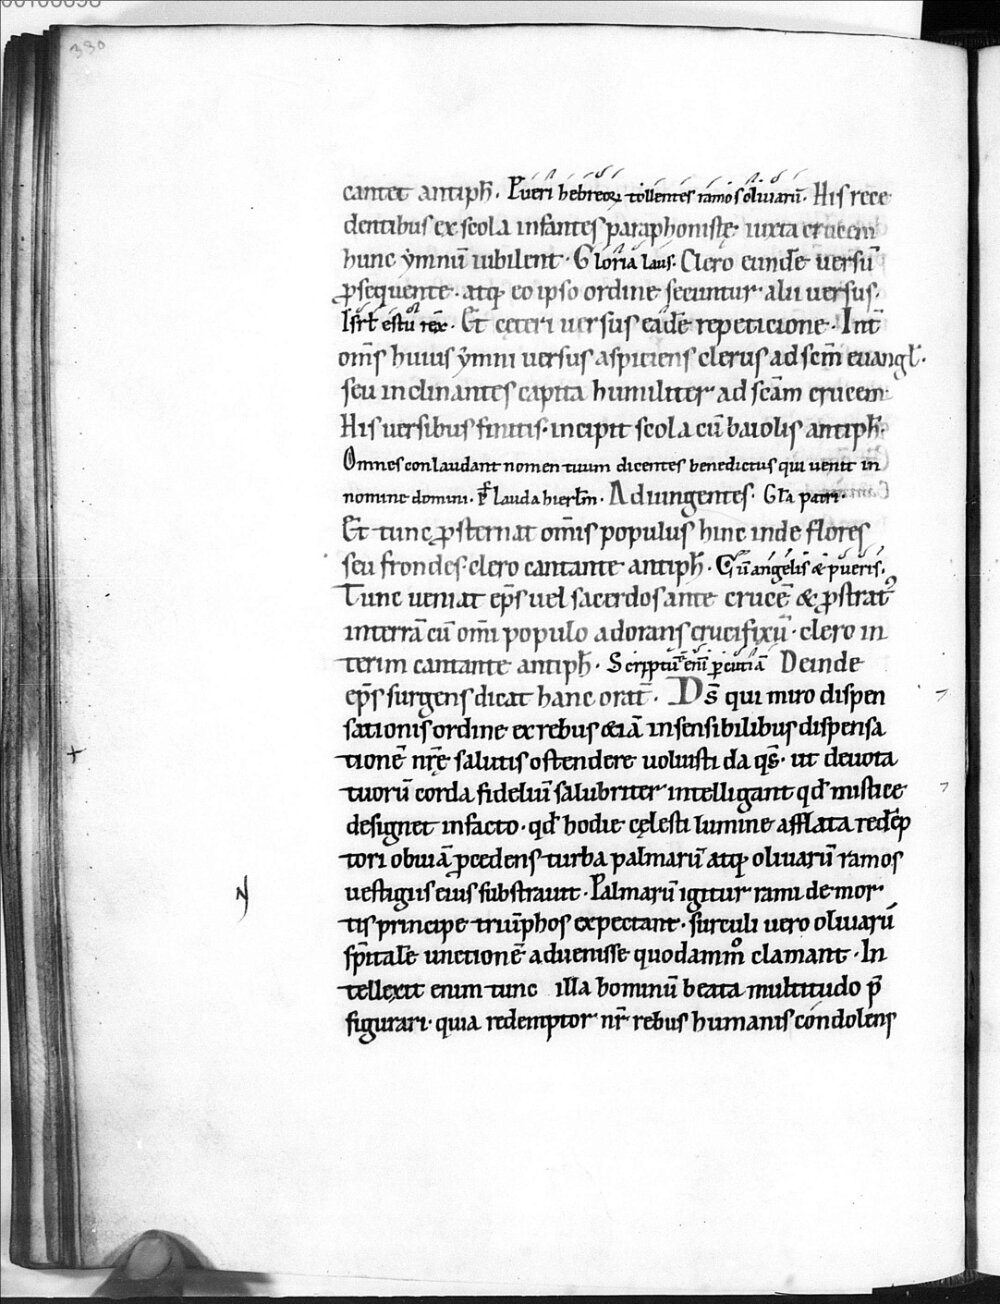 330
cantet antiph̄. Pueri hebreoꝝ tollentes ramos oliuarū. His rece
dentibus ex scola infantes paraphonistę iuxta crucem
hunc ẏmnū iubilent. Gloria laus. Clero eundē uersū
ꝓsequente. atq; eo ipso ordine secuntur alii uersus.
Isrł es tu rex. Et cęteri uersus eādē repeticione. Int̄
om̄s huius ẏmni uersus aspiciens clerus ad scm̄ euangł.
seu inclinantes capita humiliter ad scām crucem
His uersibus finitis. incipit scola cū baiolis antiph̄.
Omnes conlaudant nomen tuum dicentes benedictus qui uenit in
nomine domini. p̄s Lauda hierłm. Adiungentes. Głа patri.
Et tunc ꝓsternat om̄is populus hinc inde flores
seu frondes clero cantante antiph̄. Cū angelis & pueris.
Tunc ueniat ep̄s uel sacerdos ante crucē & ꝓstrat᷒
in terrā cū om̄i populo adorans crucifixū. clero in
terim cantante antiph̄. Scriptū ē eni̅ ꝑcutiā Deinde
ep̄s surgens dicat hanc orat̄. Ds̄ qui miro dispen
sationis ordine ex rebus &iā insensibilibus dispensa
tionē nr̄ę salutis ostendere uoluisti da qs̄. ut deuota
tuorū corda fideliū salubriter intelligant qđ mistice
designet in facto. qđ hodie cęlesti lumine afflata redēp
tori obuiā ꝓcedens turba palmarū atq; oliuarū ramos
uestigiis eius substrauit. Palmarū igitur rami de mor
tis principe triūphos expectant. surculi uero oliuarū
sp̄italē unctionē aduenisse quodammº clamant. In
tellexit enim tunc illa hominū beata multitudo p̄
figurari. quia redemptor nr̄ rebus humanis condolens